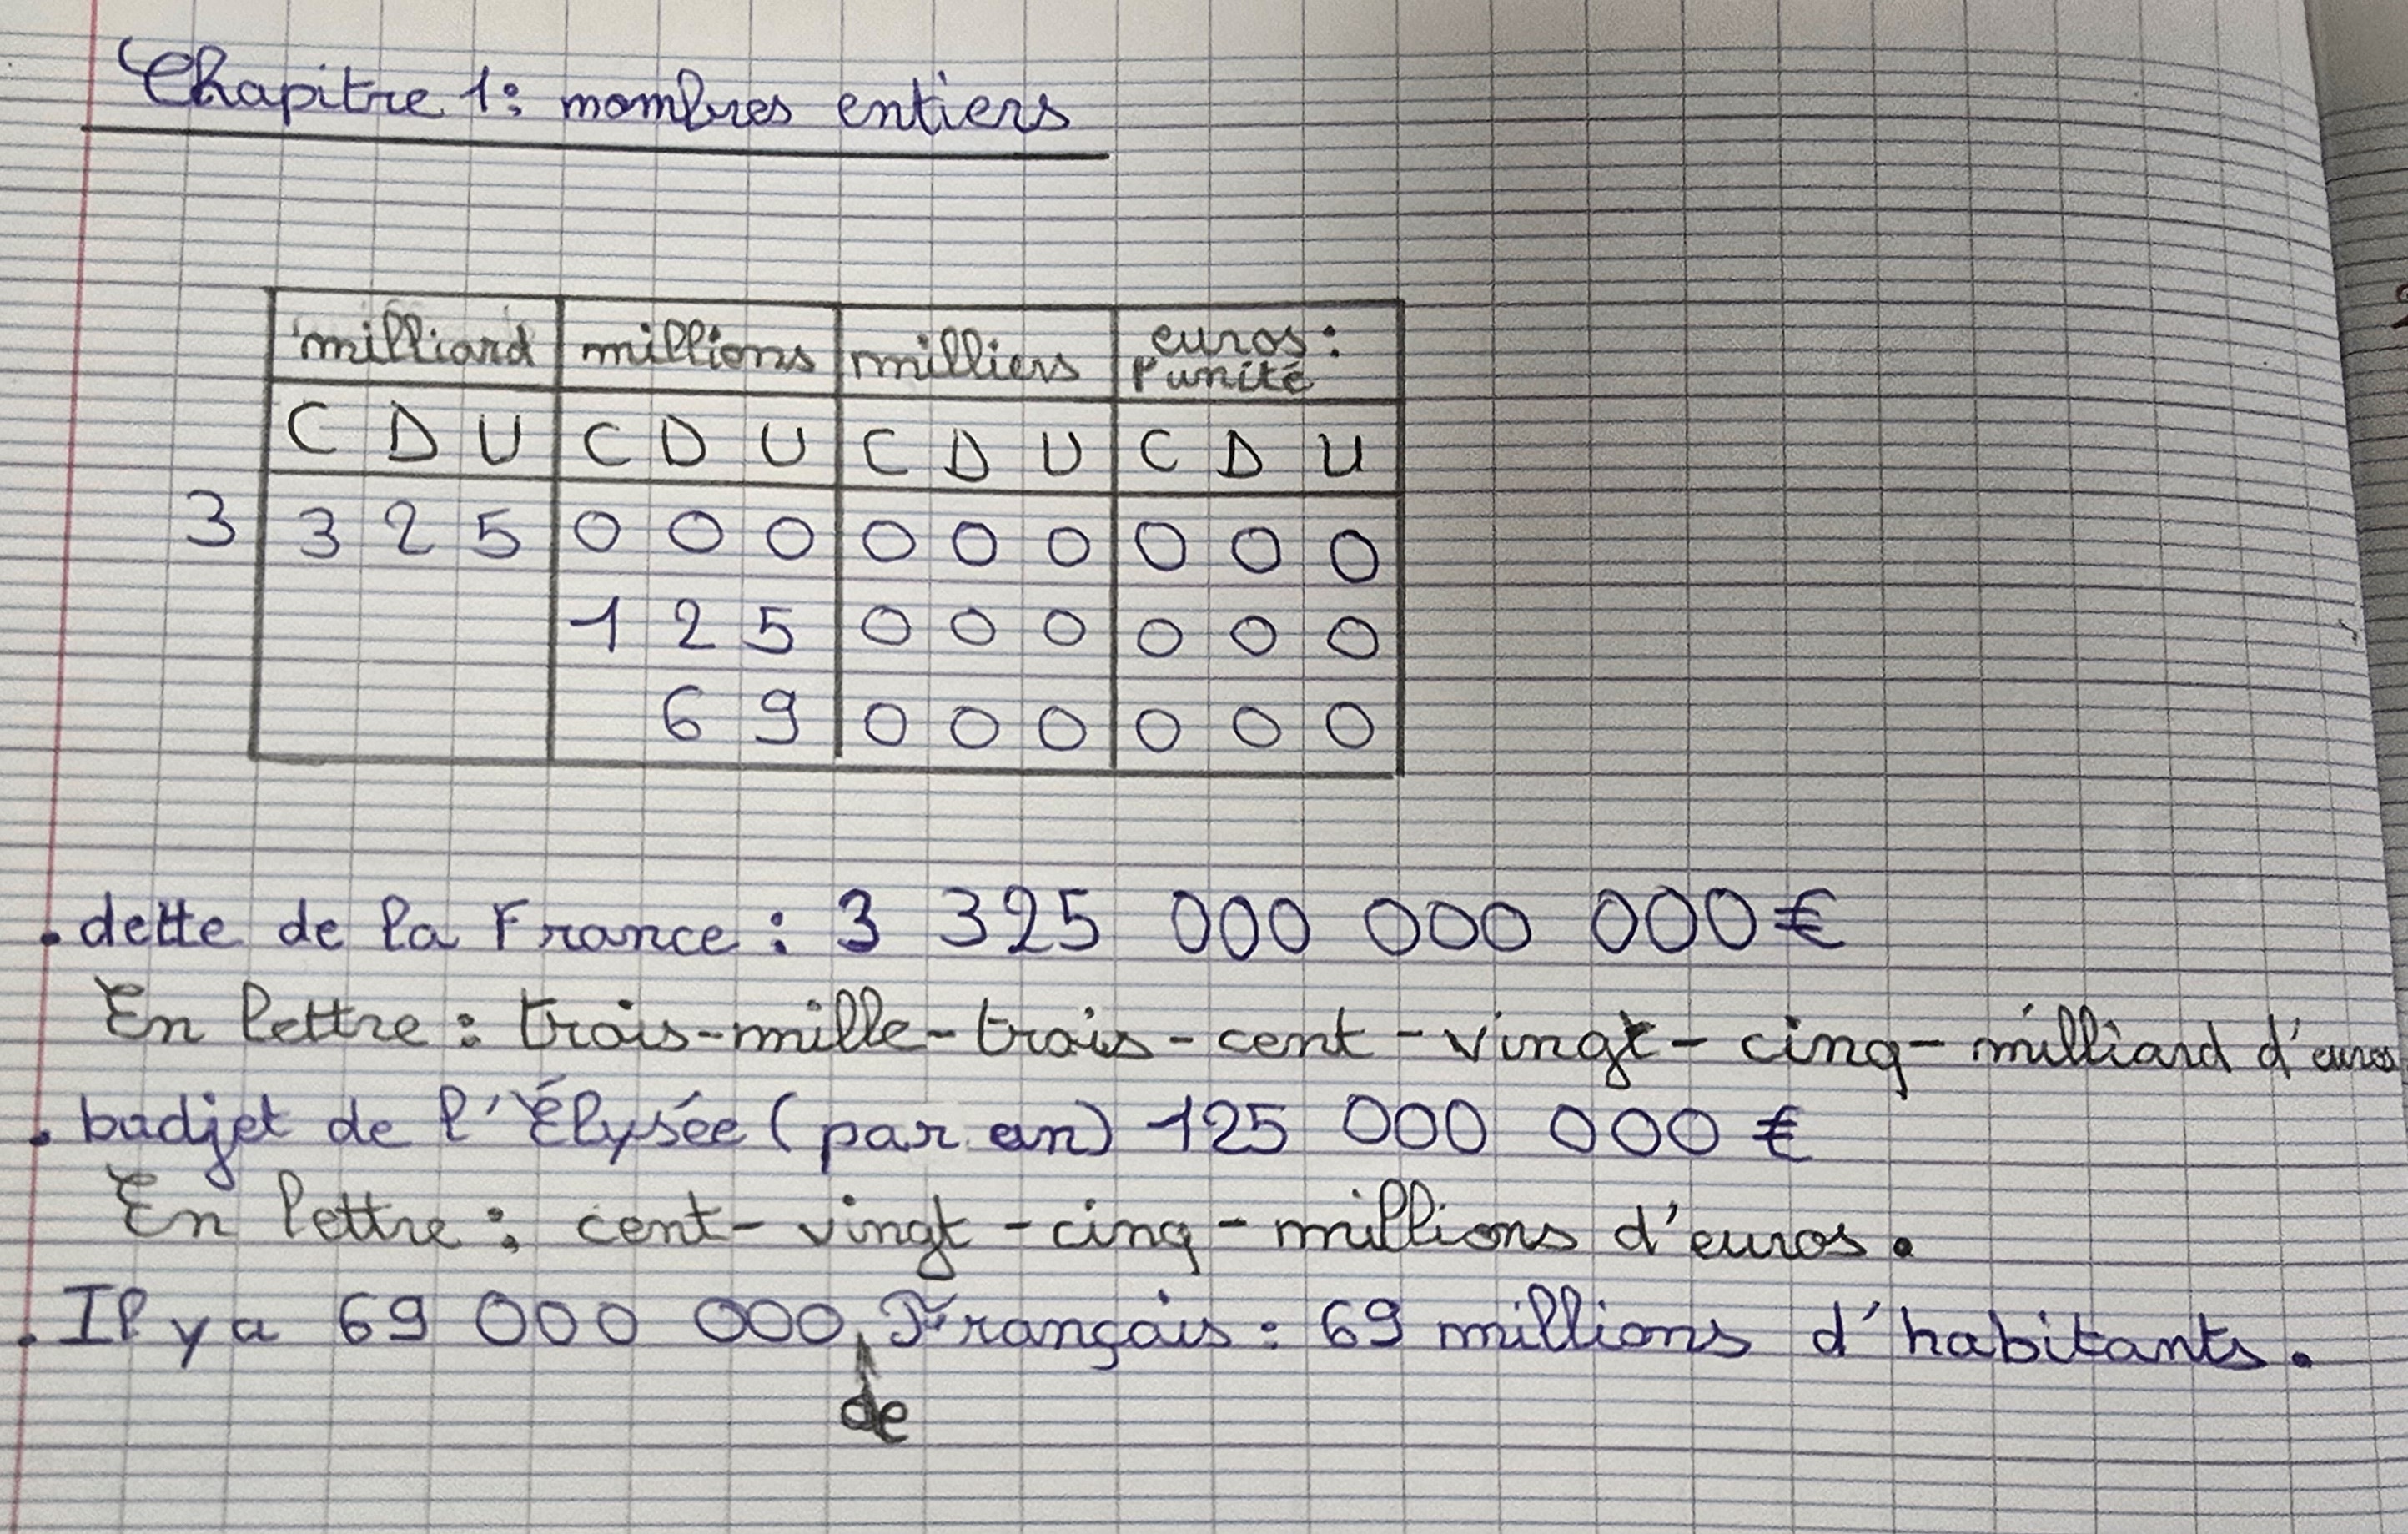 Chapitre 1: nombres entiers
milliard millions milliers euros: l'unité
C D U C D U C D U C D U
3 3 2 5 0 0 0 0 0 0 0 0 0
1 2 5 0 0 0 0 0 0
6 9 0 0 0 0 0 0
. dette de la France : 3 325 000 000 000 €
En lettre : trois-mille-trois-cent-vingt-cinq-milliard d'euros
. budjet de l'Élysée (par an) 125 000 000 €
En lettre : cent-vingt-cinq-millions d'euros.
. Il y a 69 000 000 Français : 69 millions d'habitants.
de